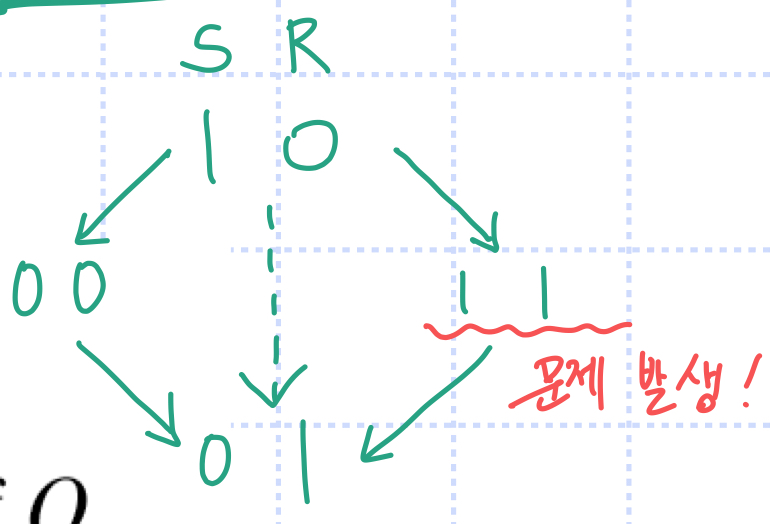 S R
1 0
0 0
1 1
문제 발생!
0 1
Q